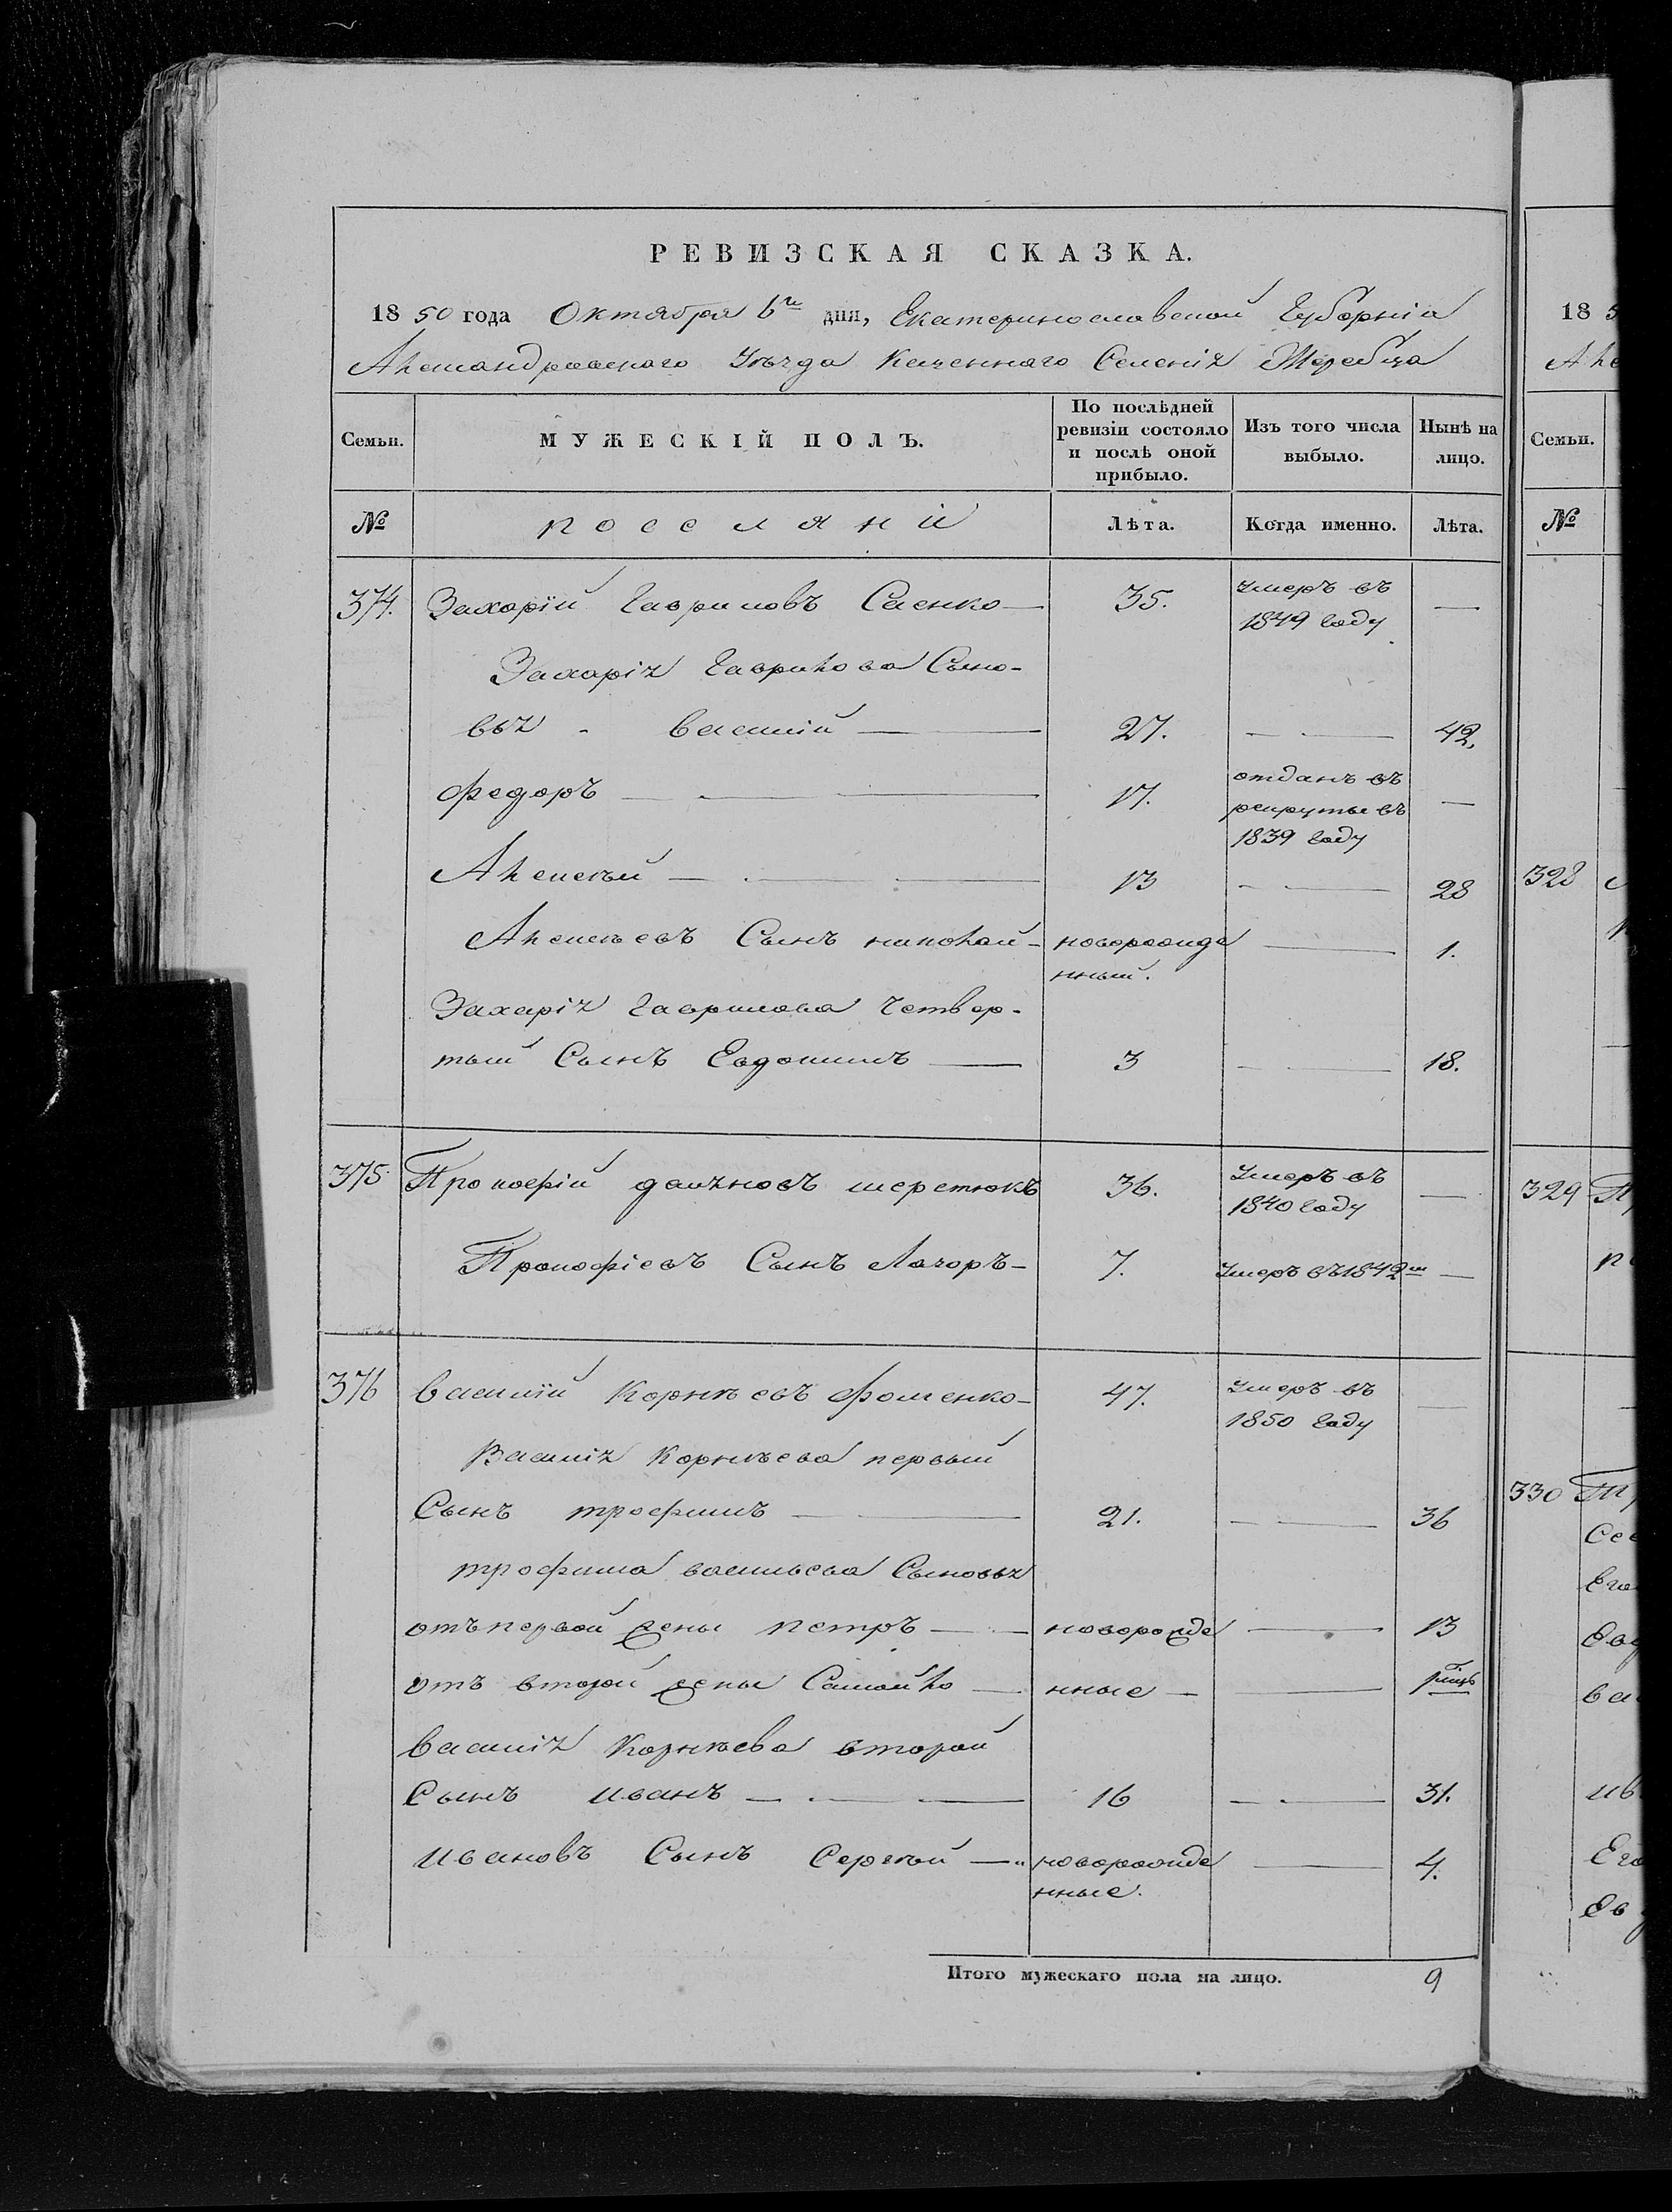 РЕВИЗСКАЯ СКАЗКА.
1850 года Октября 6го дня, Екатеринославской Губерніи
Александровскаго Уѣзда Казеннаго Селенія Жеребца
Семьи. МУЖЕСКІЙ ПОЛЪ. По послѣдней ревизіи состояло и послѣ оной прибыло. Изъ того числа выбыло. Нынѣ на лицо.
№ Лѣта. Когда именно. Лѣта.
374. Захарій Гавриловъ Саенко — 35. Умеръ въ 1849 году —
Захарія Гаврилова Сыно-
вья Василій — 27. — 42.
Федоръ — 17. отданъ въ рекруты въ 1839 году —
Алексѣй — 13 — 28
Алексѣевъ Сынъ николай — новорожде нный. — 1.
Захарія Гаврилова Четвер-
тый Сынъ Евдокимъ — 3 — 18.
375 Прокофій шеретюкъ 36. Умеръ въ 1840 году —
Прокофіевъ Сынъ Лазоръ — 7. Умеръ въ 1842м —
376 Василій Корнѣевъ Фоменко — 47. Умеръ въ 1850 году —
Василія Корнѣева первый
Сынъ трофимъ — 21. — 36
трофима васильева Сыновья
отъ первой жены петръ — новорожде — 13
отъ второй жены Самойло — нные —
Василія Корнѣева второй
Сынъ иванъ — 16 — 31.
ивановъ Сынъ Сергѣй — новорожде нные. — 4.
Итого мужескаго пола на лицо. 9
18 5
Але
Семьи.
№
328
329
330